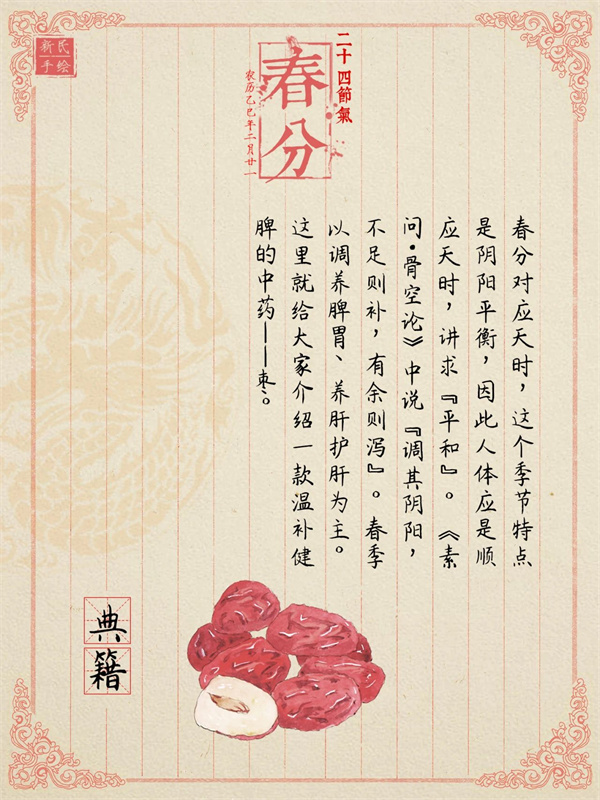 新民
手绘
二十四節氣
春分
农历乙巳年二月廿一
春分对应天时，这个季节特点
是阴阳平衡，因此人体应是顺
应天时，讲求『平和』。《素
问·骨空论》中说『调其阴阳，
不足则补，有余则泻』。春季
以调养脾胃、养肝护肝为主。
这里就给大家介绍一款温补健
脾的中药——枣。
典籍